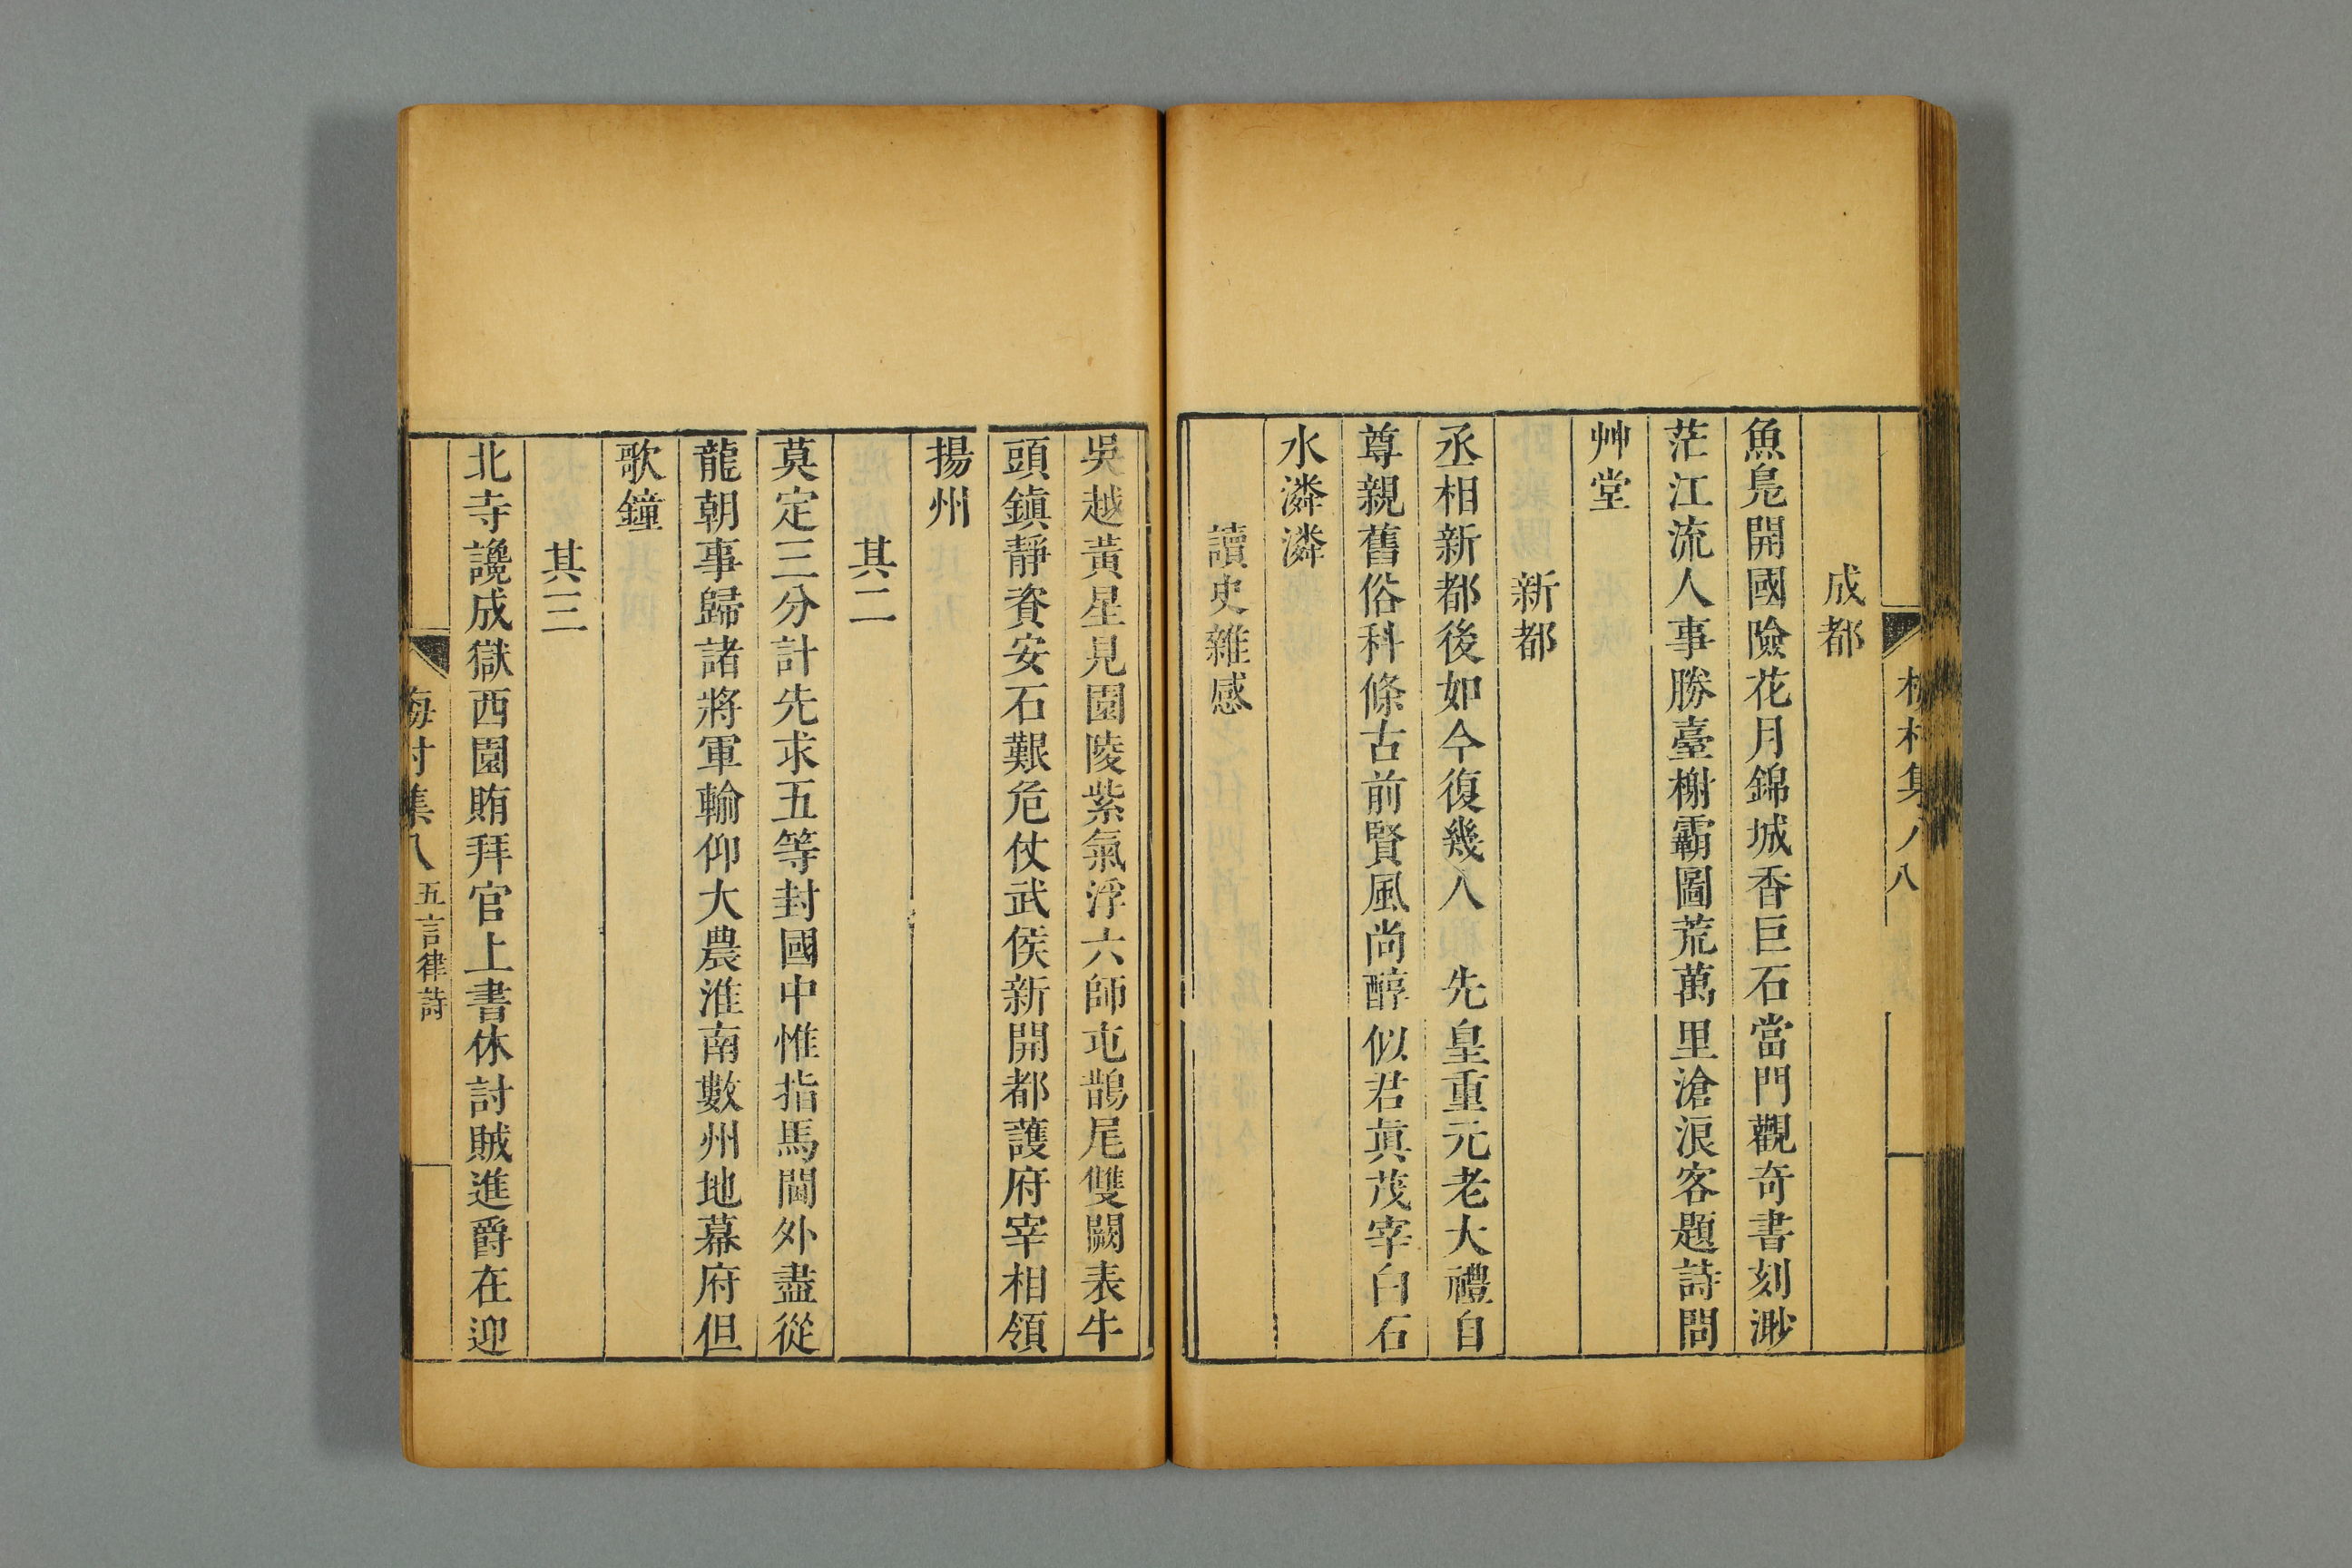 成都
魚鳧開國險花月錦城香巨石當門觀奇書刻渺
茫江流人事勝臺榭霸圖荒萬里滄浪客題詩問
艸堂
新都
丞相新都後如今復幾人 先皇重元老大禮自
尊親舊俗科條古前賢風尚醇似君真茂宰白石
水潾潾
讀史雜感
吳越黃星見園陵紫氣浮六師屯鵲尾雙闕表牛
頭鎮靜資安石艱危仗武侯新開都護府宰相領
揚州
其二
莫定三分計先求五等封國中惟指馬閫外盡從
龍朝事歸諸將軍輸仰大農淮南數州地幕府但
歌鐘
其三
北寺讒成獄西園賄拜官上書休討賊進爵在迎
梅村集八 五言律詩